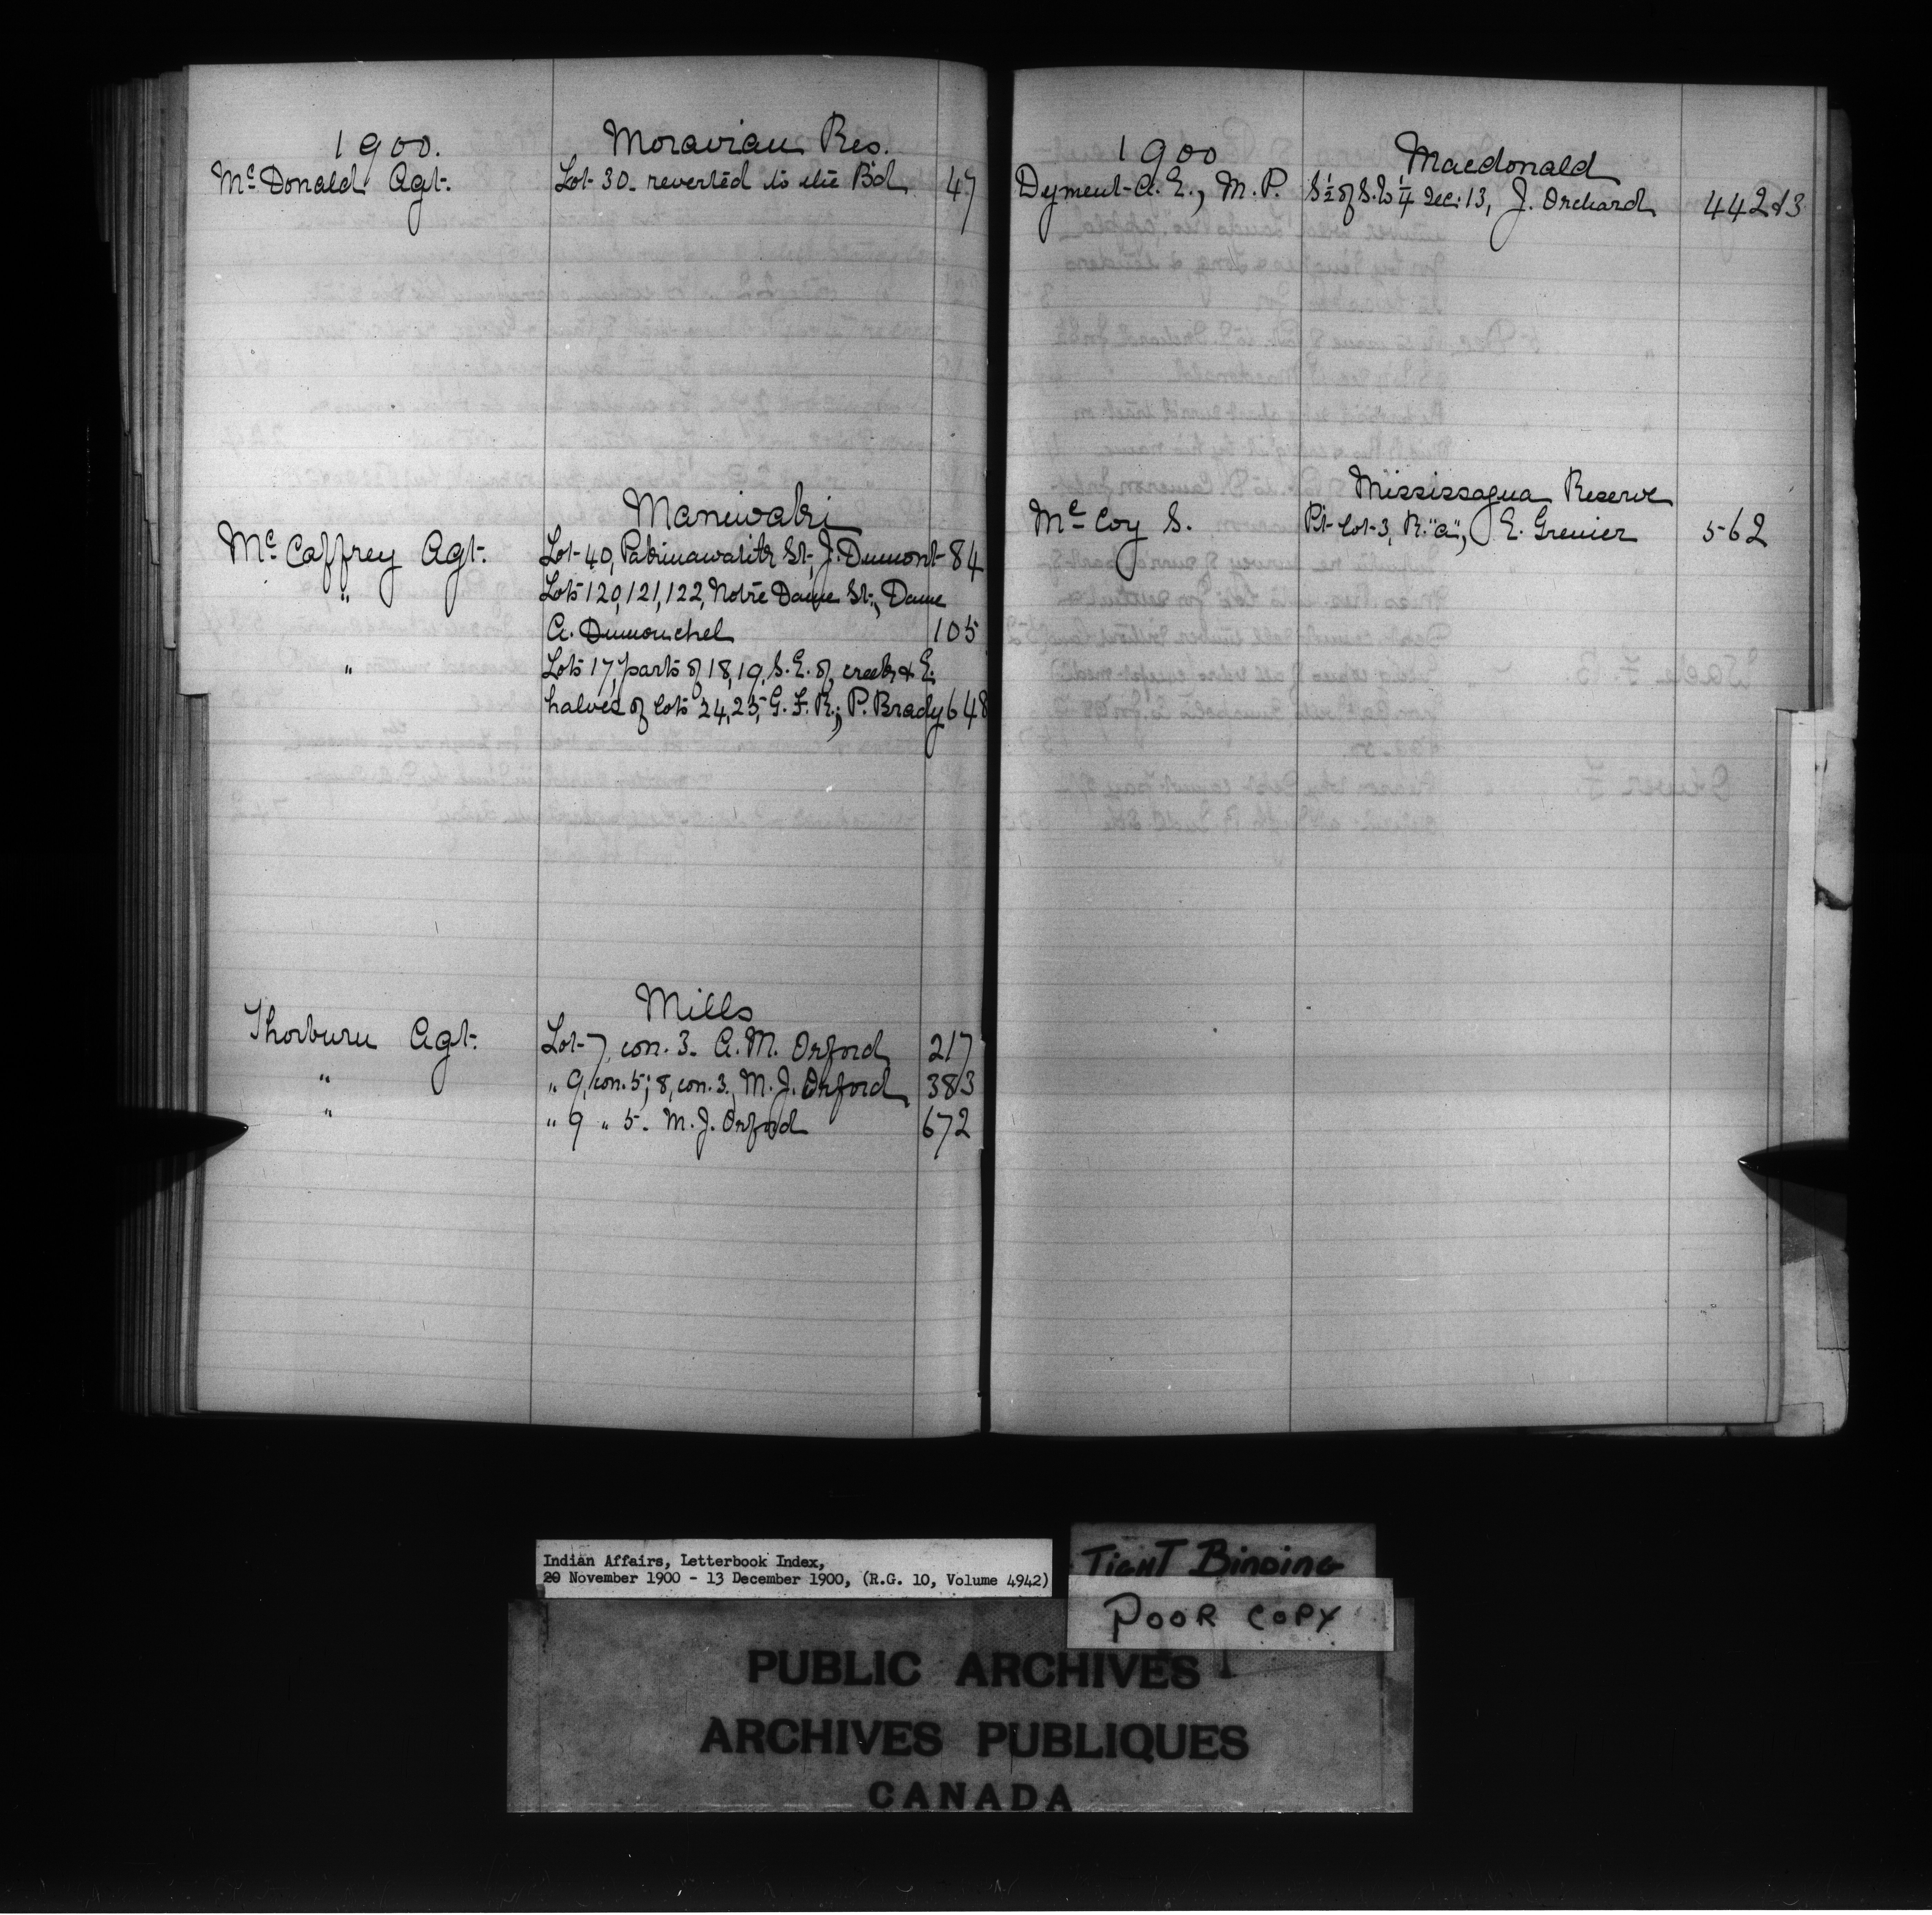 1900. Moravian Res.
Mc Donald Agt. Lot 30. reverted to the Bd. 47
Maniwaki
Mc Caffrey Agt. Lot 40, St., J. Dumont 84
" Lots 120, 121, 122, Notre Dame St., Dame
A. Dumouchel 105
" Lots 17, parts of 18, 19, S.E. of creek & E.
halves of Lots 24, 25, G.F.R., P. Brady 648
Mills
Thorburn Agt. Lot 7, con. 3. A. M. Orford 217
" " 9, con. 5; 8, con. 3, M. J. Orford 383
" " 9 " 5. M. J. Orford 672
1900 Macdonald
Dyment A. E., M.P. S½ of S.W¼ Sec. 13, J. Orchard 442&3
Mississagua Reserve
Mc Coy S. Pt. Lot 3, R. "A", E. Grenier 562
Indian Affairs, Letterbook Index,
20 November 1900 - 13 December 1900, (R.G. 10, Volume 4942)
TIGHT BINDING
POOR COPY
PUBLIC ARCHIVES
ARCHIVES PUBLIQUES
CANADA